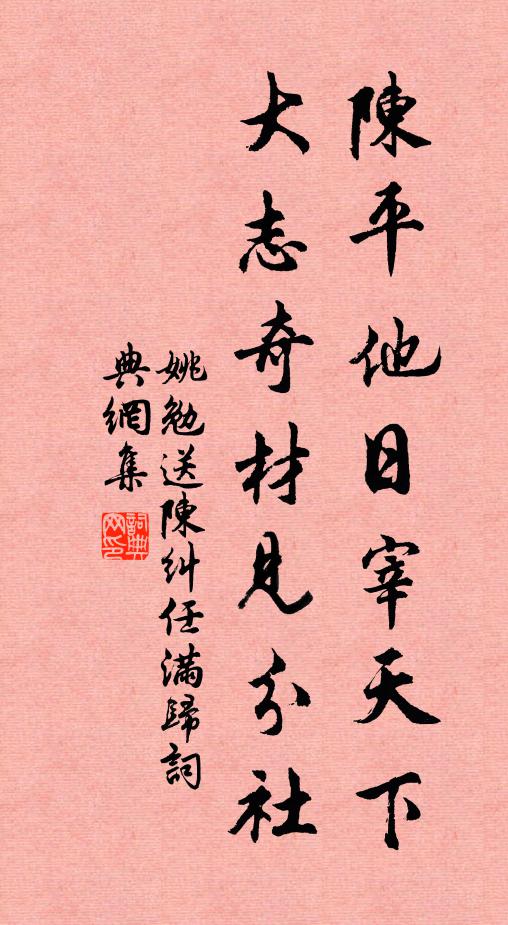 陳平他日宰天下
大志奇材見分社
姚勉送陳糾任滿歸詞
典網集
詞典
网印